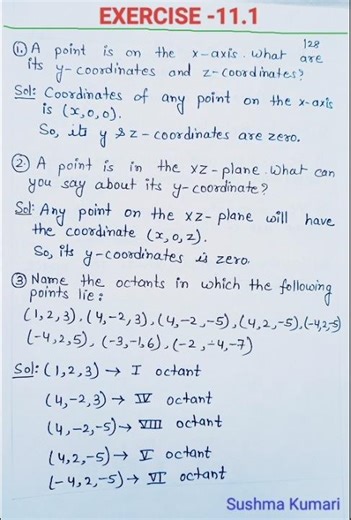 EXERCISE -11.1
128
① A point is on the x-axis. What are
its y-coordinates and z-coordinates?
Sol: Coordinates of any point on the x-axis
is (x,0,0).
So, its y & z - coordinates are zero.
② A point is in the XZ-plane. What can
you say about its y-coordinate?
Sol: Any point on the XZ-plane will have
the coordinate (x,0,z).
So, its y-coordinates is zero.
③ Name the octants in which the following
points lie:
(1,2,3), (4,-2,3), (4,-2,-5), (4,2,-5), (-4,2,-5)
(-4,2,5), (-3,-1,6), (-2,-4,-7)
Sol: (1,2,3) → I octant
(4,-2,3) → IV octant
(4,-2,-5) → VIII octant
(4,2,-5) → V octant
(-4,2,-5) → VI octant
Sushma Kumari